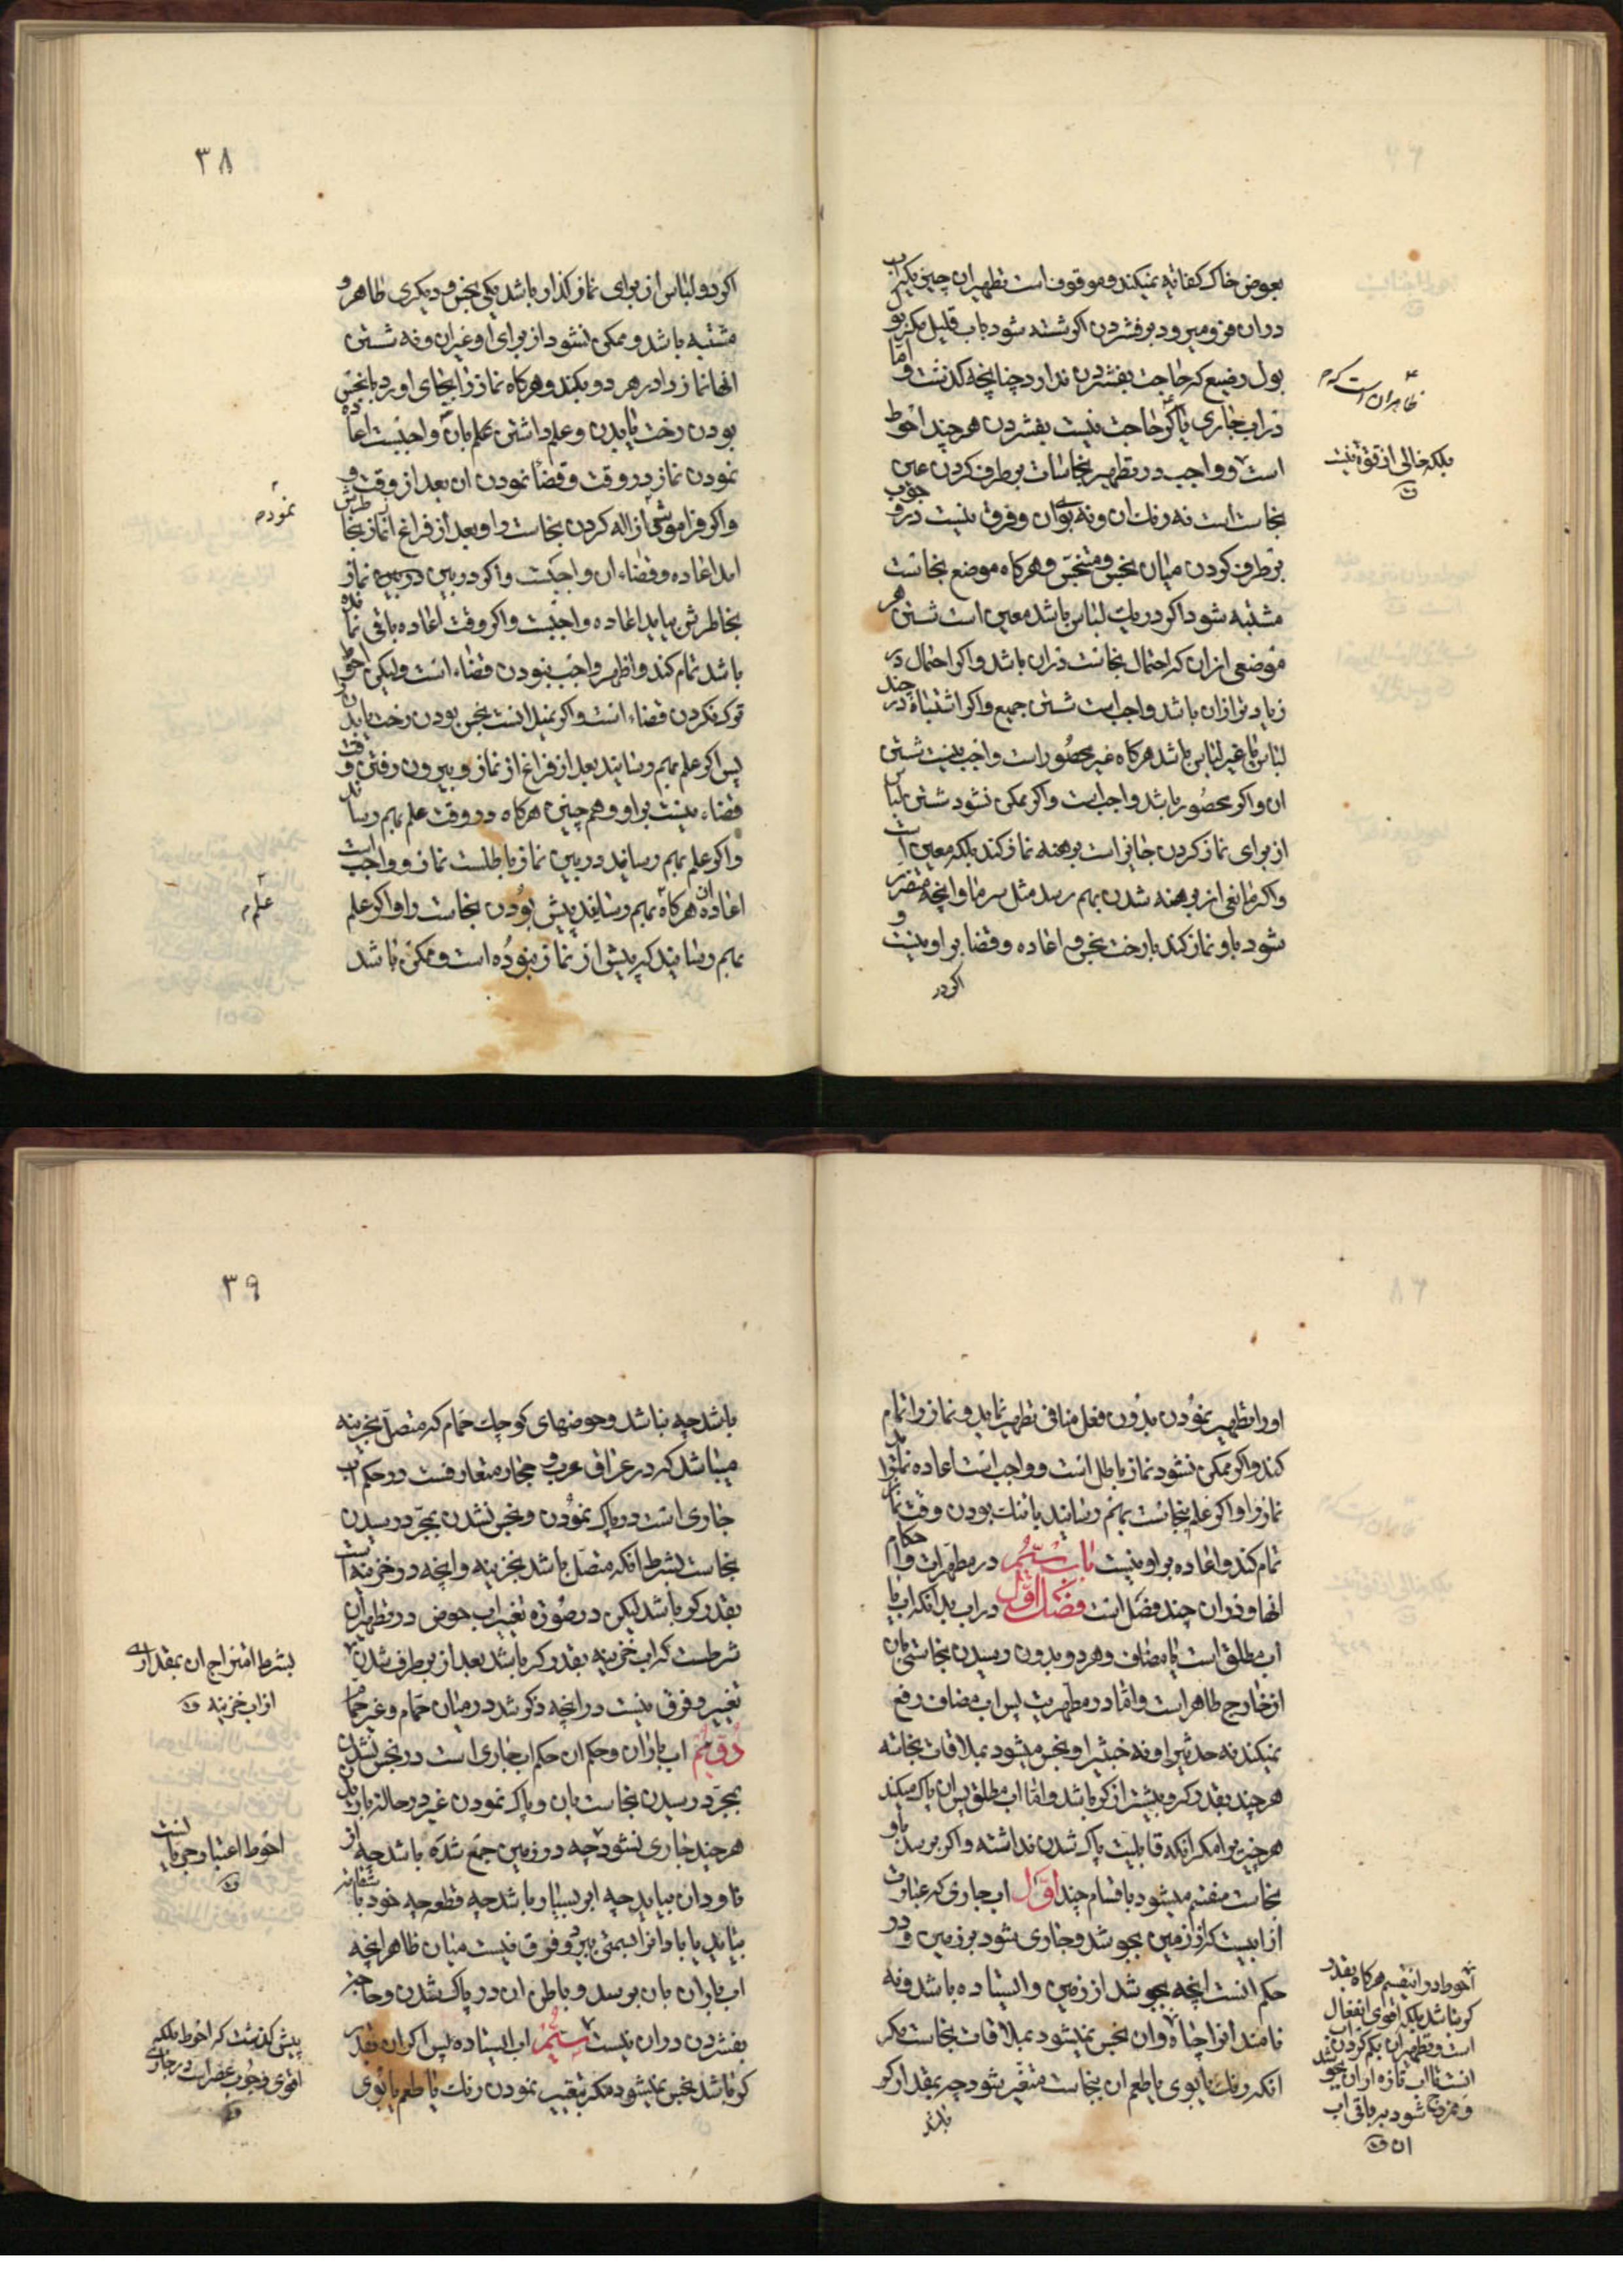 بعوض خاک کفاته نمیکند و موقوف است تطهیر ان چیزیکه اب
دران فرو میرود بر فشردن اکر شسته شود باب قلیل مکر بول
بول رضیع که حاجت بفشردن ندارد چنانچه کذشت و اما
در اب جاری یا کر حاجت نیست بفشردن هر چند احوط
است و واجب در تطهیر نجاسات بر طرف کردن عین
نجاست است نه رنک ان و نه بوی ان و فرق نیست در وجوب
بر طرف کردن میان نجس و متنجس و هر کاه موضع نجاست
مشتبه شود اکر در یک لباس باشد معین است شستن هر
موضعی از ان که احتمال نجاست دران باشد و اکر احتمال در
زیادتر از ان باشد واجب است شستن جمیع و اکر اشتباه در چند
لباس یا غیر لباس باشد هر کاه غیر محصور است واجب نیست شستن
ان و اکر محصور باشد واجب است و اکر ممکن نشود شستن لباس
از برای نماز کردن جایز است برهنه نماز کند بلکه معین است
و اکر مانعی از برهنه شدن بهم رسد مثل سرما و انچه متضرر
شود باو نماز کند با رخت نجس و اعاده و قضا بر او نیست و
اکر در
ظاهر ان است که م
بلکه خالی از قوة نیست
۳۸
اکر دو لباس از برای نماز کذار باشد یکی نجس و دیکری طاهر و
مشتبه باشد و ممکن نشود از برای او غیر ان و نه شستن
انها نماز را در هر دو بکند و هر کاه نماز را بجای اورد با نجس
بودن رخت یا بدن و علم داشتن بعلم بان واجبست اعاده
نمودن نماز در وقت و قضا نمودن ان بعد از وقت و
و اکر فراموشی ازاله کردن نجاست را و بعد از فراغ از نماز بخاطرش
امد اعاده و قضاء ان واجبست و اکر در بین نماز
بخاطرش بیاید اعاده واجبست و اکر وقت اعاده باقی نمانده
باشد تمام کند و اظهر واجب نبودن قضاء است و لیکن احوط
ترک نکردن قضاء است و اکر نمیدانست نجس بودن رخت یا بدن را
پس اکر علم بهم رسانید بعد از فراغ از نماز و بیرون رفتن وقت
قضاء نیست بر او و هم چنین هر کاه در وقت علم بهم رساند
و اکر علم بهم رسانید در بین نماز باطلست نماز و واجب است
اعاده ان هر کاه بهم رسانید پیش بودن نجاست را و اکر علم
بهم رسانید که پیش از نماز نبوده است و ممکن باشد
نمود م
علم م
او را تطهیر نمودن بدون فعل منافی تطهیر نماید و نماز را تمام
کند و اکر ممکن نشود نماز باطل است و واجب است اعاده نماید
نماز را و اکر علم بنجاست بهم رسانید با تنک بودن وقت نماز را
تمام کند و اعاده بر او نیست باب سیم در مطهرات و احکام
انها و دران چند فصل است فصل اول در اب بدانکه اب یا
اب مطلق است یا مضاف و هر دو بدون رسیدن نجاستی بان
از خارج طاهر است و اما در مطهریت پس اب مضاف رفع
نمیکند نه حدثیرا و نه خبثیرا و نجس میشود بملاقات نجاسة
هر چند بقدر کر و بیشتر از کر باشد و اما اب مطلق پس ان پاک میکند
هر چیزیرا مکر انکه قابلیت پاک شدن نداشته و اکر برسد باو
نجاست منقسم میشود باقسام چند اول اب جاری که عبارت
از ابیست که از زمین بجوشد و جاری شود بر زمین و در
حکم انست انچه بجوشد از زمین و ایستاده باشد و نه
نامند انرا چاه و ان نجس نمیشود بملاقات نجاست مکر
انکه رنک یا بوی یا طعم ان بنجاست متغیر شود چه بمقدار کر
باشد
احوط در این قسم هر کاه بقدر
کر نباشد بلکه اقوی انفعال
است و تطهیر ان بکم کردن اب
انست تا اب تازه از ان بجوشد
و ممزوج شود بر باقی اب
ان
۳۹
باشد چه نباشد و حوضهای کوچک حمام که متصل بخزینه
میباشد که در عراق عرب و حجاز متعارفست در حکم اب
جاری است در پاک نمودن و نجس نشدن بمجرد رسیدن
نجاست بشرط انکه متصل باشد بخزینه و انچه در خزینه است
بقدر کر باشد لیکن در صورة تغییر اب حوض در تطهیر ان
شرطست که اب خزینه بقدر کر باشد بعد از بر طرف شدن
تغییر و فرق نیست در انچه ذکر شد در میان حمام و غیر حمام
دویم اب باران و حکم ان حکم اب جاری است در نجس نشدن
بمجرد رسیدن نجاست بان و پاک نمودن غیر در حالة باریدن
هر چند جاری نشود چه در زمین جمع شده باشد چه از
ناودان بیاید چه ابر بسیار باشد چه قطعه چه خود باستقامه
بیاید یا باد انرا بسمتی ببرد و فرق نیست میان ظاهر انچه
اب باران بان برسد و باطن ان در پاک شدن و حاجت
بفشردن دران نیست سیم اب ایستاده پس اکر ان بقدر
کر باشد نجس نمیشود مکر بتغییر نمودن رنک یا طعم یا بوی
بشرط امتزاج ان بمقداری
از اب خزینه
احوط اعتبار جریانست
پیش کذشت که احوط بلکه
اقوی وجوب عصر است در جاری